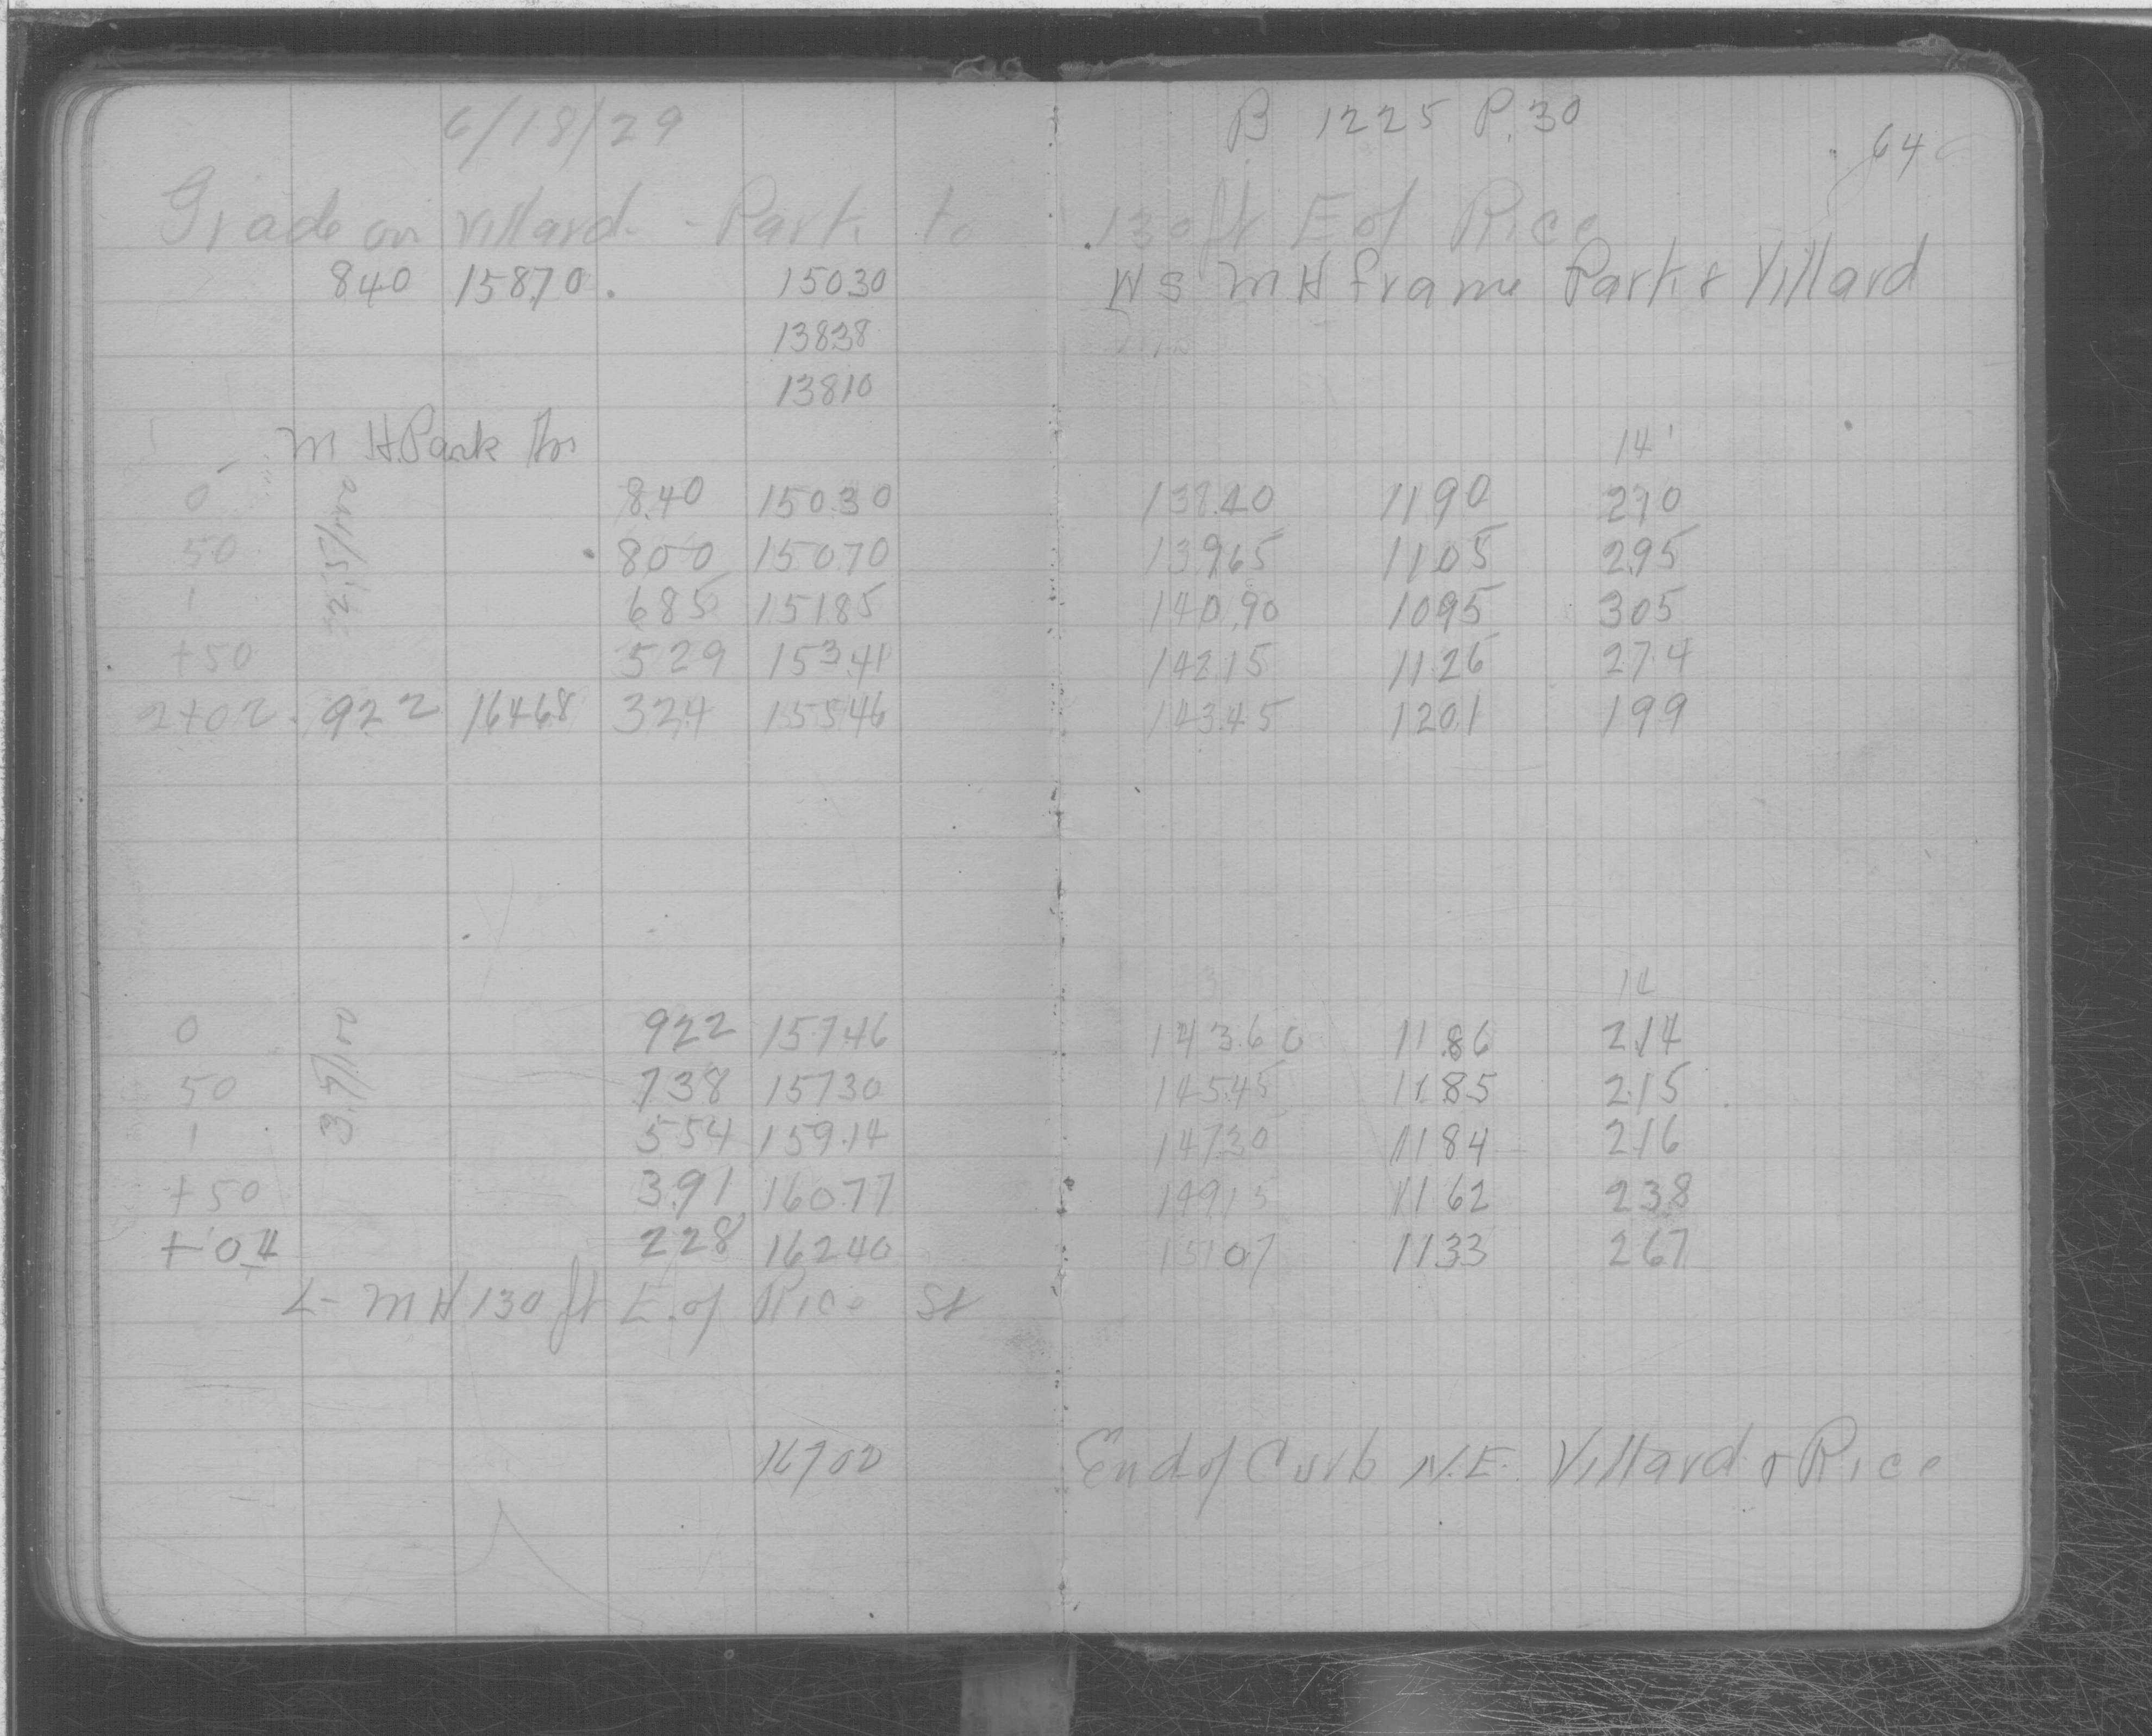 6/18/29 B 1225 P.30
64
Grade on Villard - Park to 130 ft E of Rice
840 15870 15030 W S M H frame Park & Villard
13838
13810
M H Park Av 14'
0 840 15030 13840 1190 210
50 800 15070 13965 1105 295
1 685 15185 14090 1095 305
+50 529 15341 14215 1126 274
2+02 922 16468 324 15546 14345 1201 199
2.5/100
14
0 922 15746 14360 1186 214
50 738 15730 14545 1185 215
1 554 15914 14730 1184 216
+50 391 16077 14915 1162 238
+04 228 16240 15107 1133 267
3.7/100
L- M H 130 ft E. of Rice St
16702 End of Curb N.E. Villard & Rice